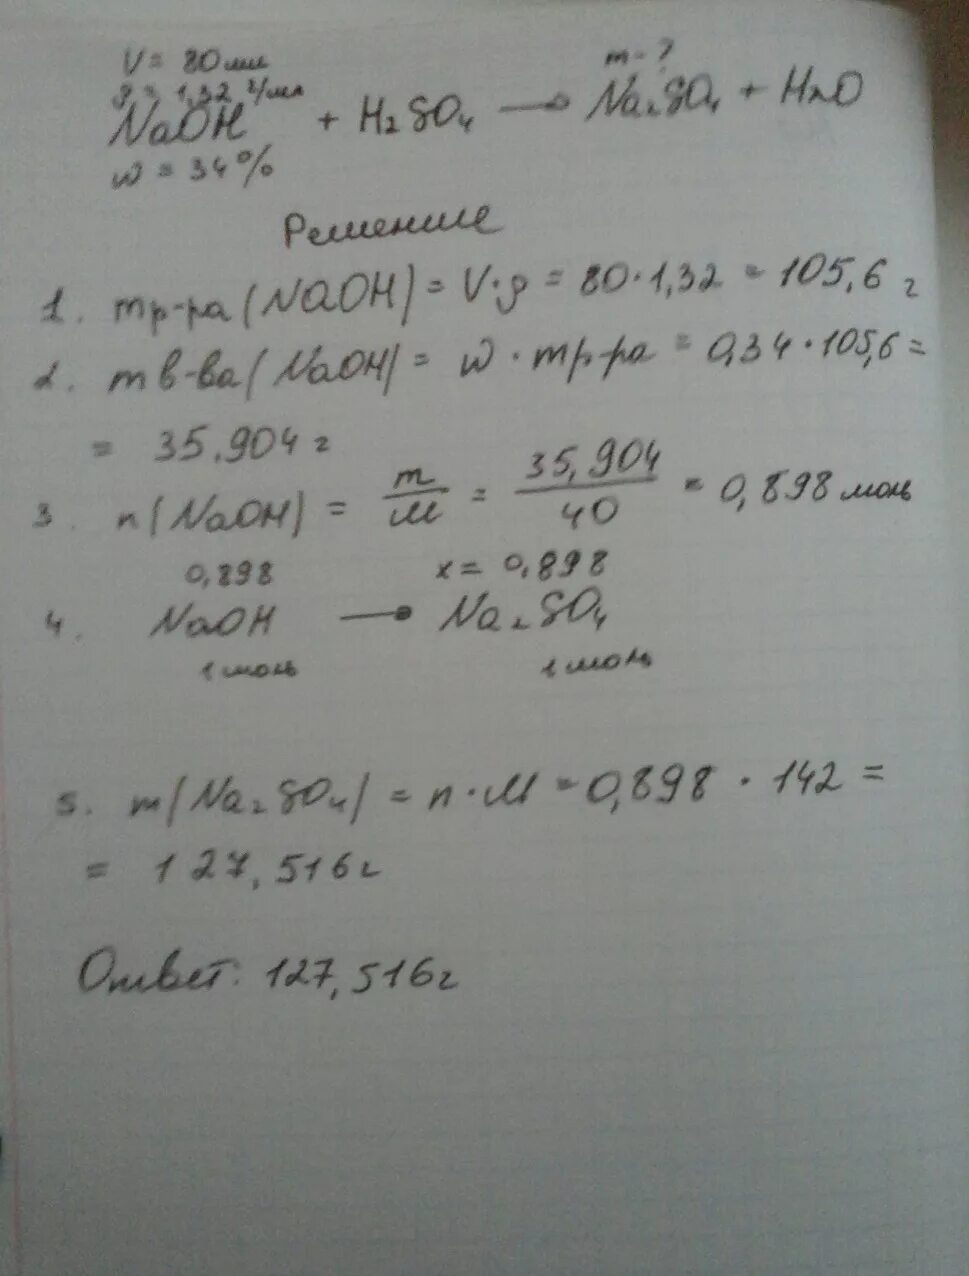 V = 80 мл
ρ = 1,32 г/мл
m - ?
NaOH + H₂SO₄ → Na₂SO₄ + H₂O
w = 34%
Решение
1. mр-ра (NaOH) = V·ρ = 80·1,32 = 105,6 г
2. mв-ва (NaOH) = w · mр-ра = 0,34 · 105,6 =
= 35,904 г
3. n (NaOH) = m/M = 35,904/40 = 0,898 моль
0,898 x = 0,898
4. NaOH → Na₂SO₄
1 моль 1 моль
5. m (Na₂SO₄) = n · M = 0,898 · 142 =
= 127,516 г
Ответ: 127,516 г